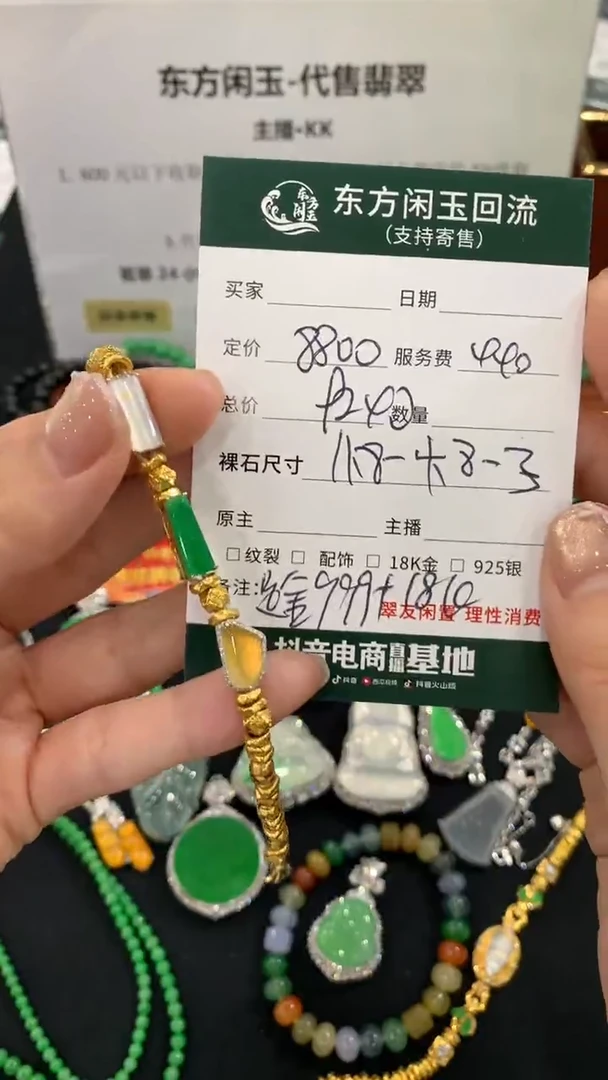 东方闲玉-代售翡翠
主播·KK
东方闲玉
东方闲玉回流
(支持寄售)
买家 日期
定价 8800 服务费 440
总价 9240 数量
裸石尺寸 11.8-4.8-3
原主 主播
□纹裂 □ 配饰 □ 18K金 □ 925银
备注: 金999+18k
翠友闲置 理性消费
抖音电商直播基地
抖音 西瓜视频 抖音火山版